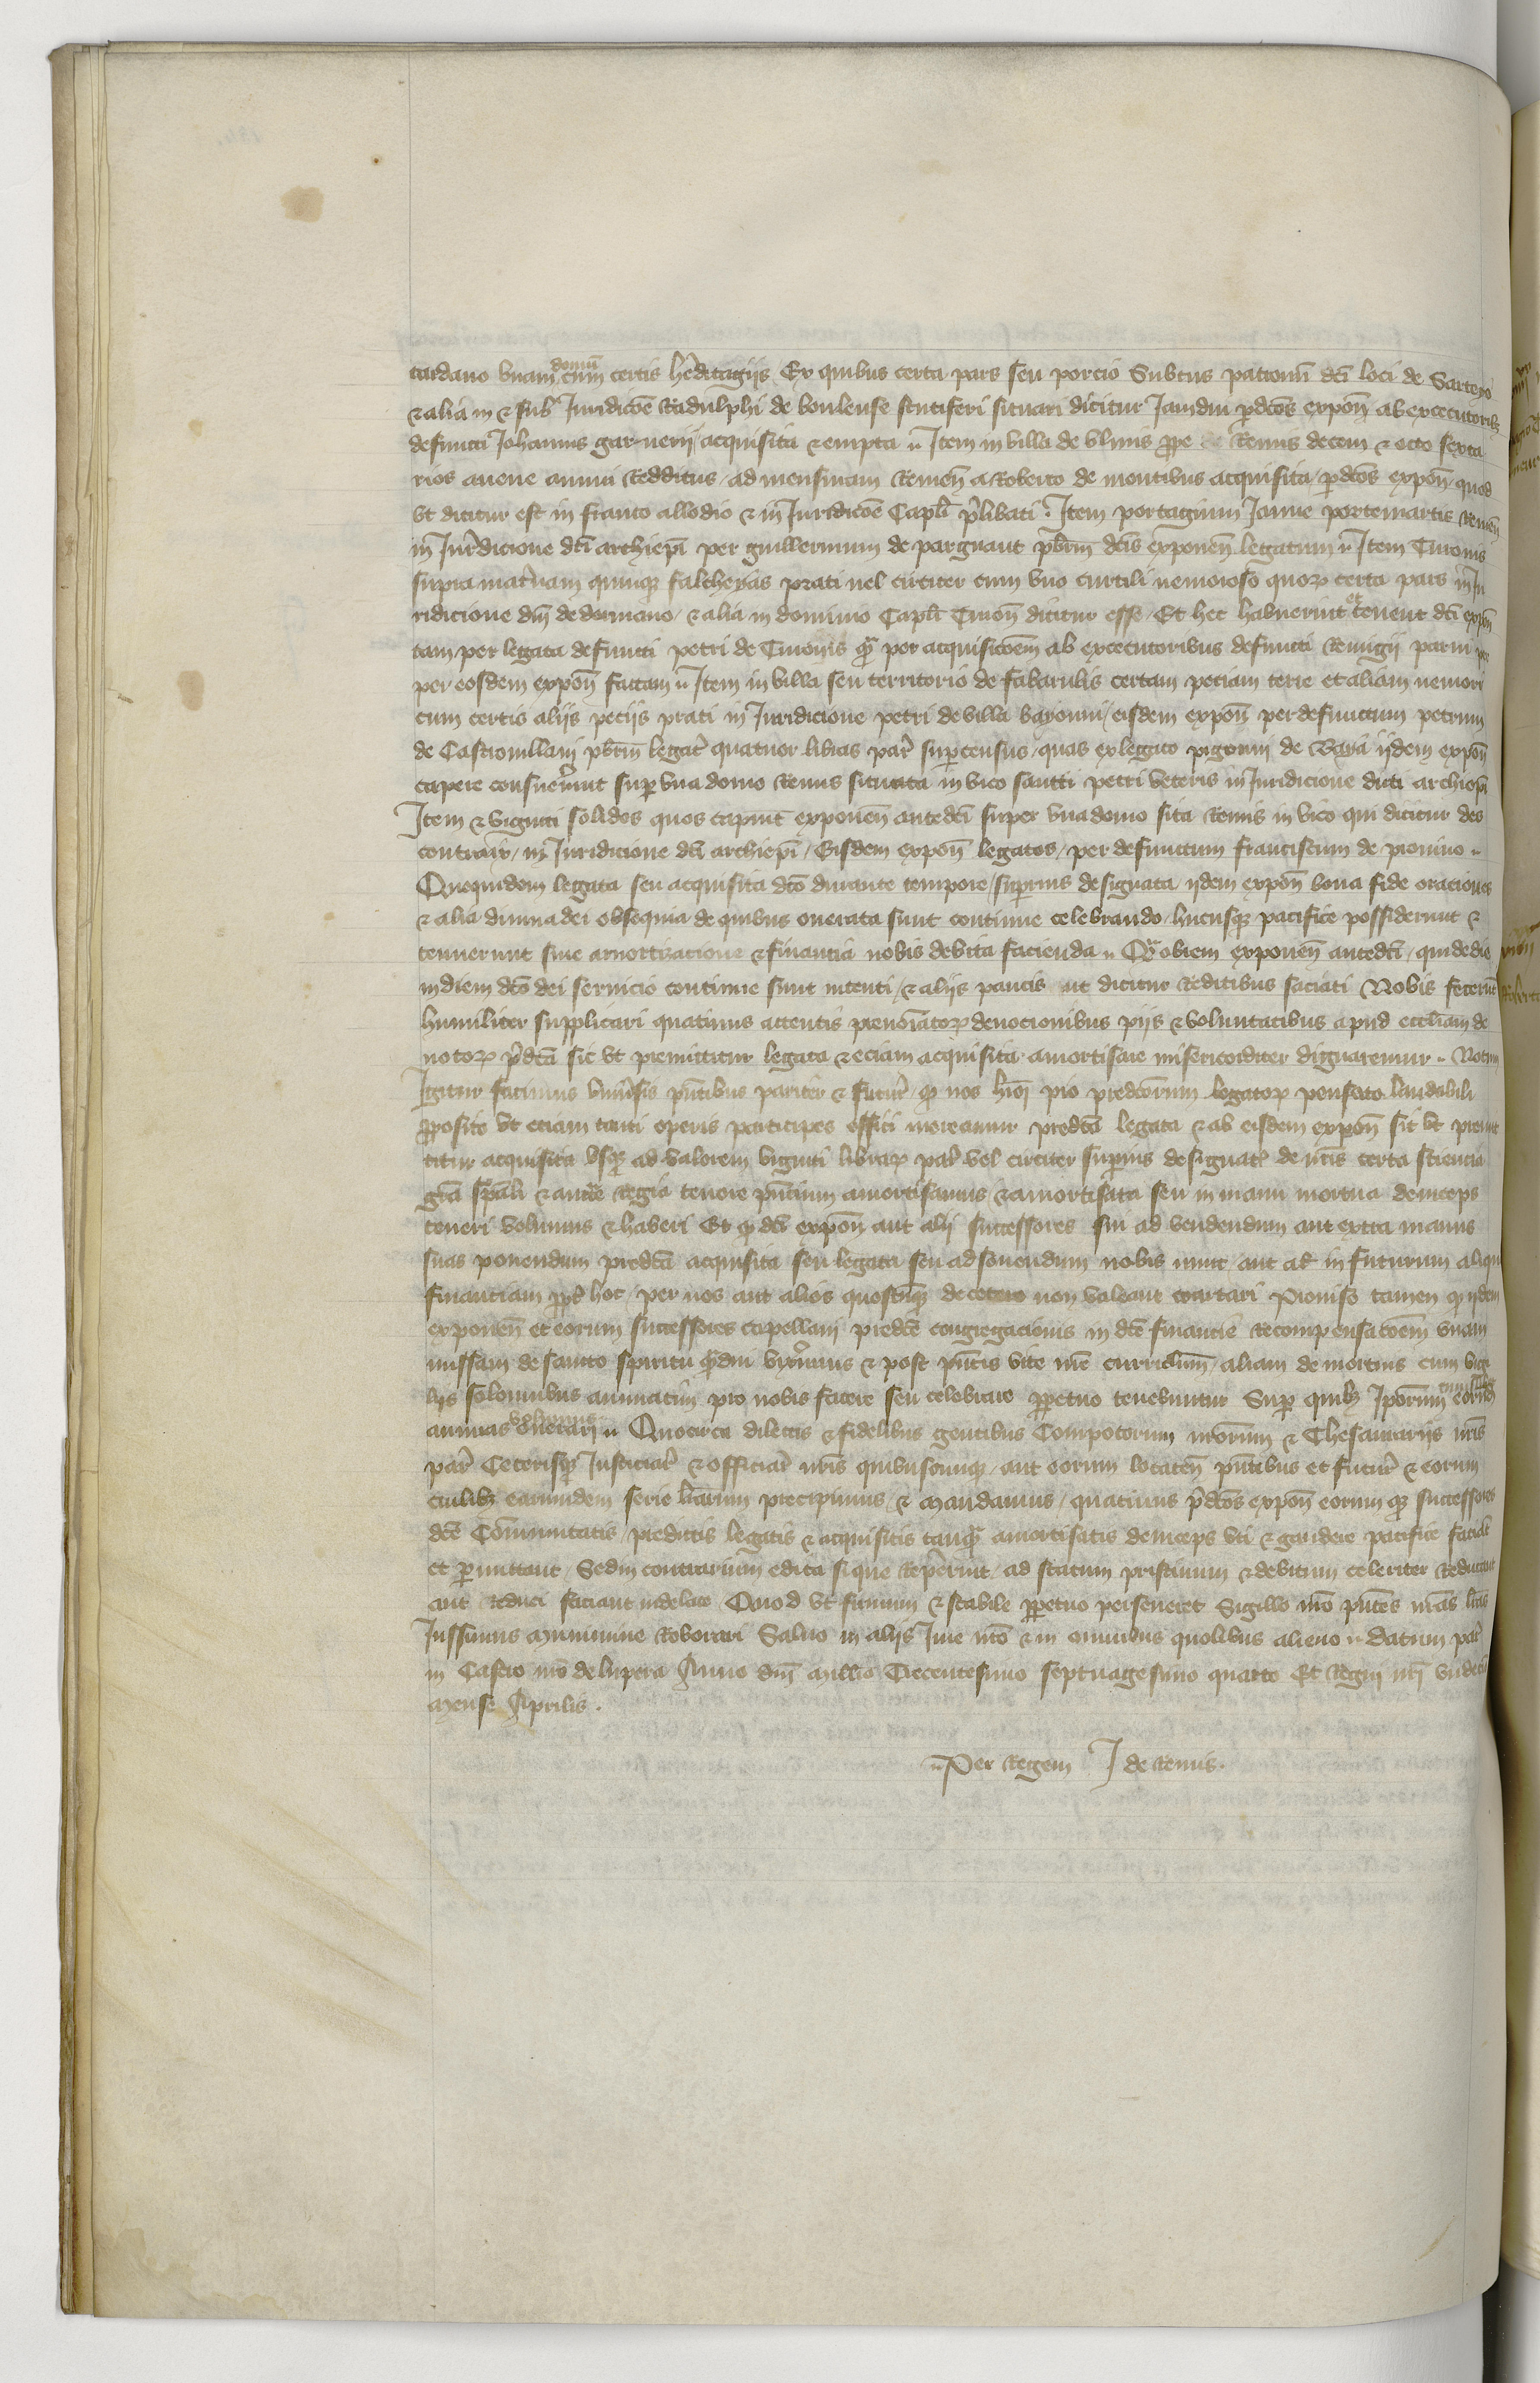 tardano vnam domū cum certis hēditagijs Ex quibus certa pars seu porcio Subtus patronū dc̄i loci de Sarteyo
& alia in & sub Juridicōe Radulphi de boulense scutiferi situari dicitur Jamdiu p̄dcōs expoñ ab executorib;
defuncti Johannis garnerij acquisita & empta Item in villa de vlmis ꝓpe Remis decem & octo sexta
rios auene annui Redditus ad mensuram Remeñ a Roberto de montibus acquisita p̄dcōs expoñ quod
vt dicitur est in franco allodio & in Juridicōe Capl̄i p̄libati Item portagium Janue portemartis Remeñ
in Jur̄dicione dc̄i archiep̄i per guillermum de parguant pb̄rm dc̄is exponeñ legatum Item Cuionis
supra mat̄nam quinq; falcheyas prati uel circiter cum vno curtili nemoroso quoꝝ certa pars in Ju
ridicione dn̄i de dormano & alia in dominio Capl̄i Cuioñ dicitur esse Et hec habuerunt et tenent dc̄i expoñ
tam per legata defuncti petri de Cuionis q̄ per acquisicōem ab executoribus defuncti Remigij parui
per eosdem expoñ factam Item in villa seu territorio de fabarulis certam peciam terre et aliam nemori
cum certis alijs pecijs prati in Juridicione petri de villa bayonni eisdem expoñ per defunctum petrum
de Castrouillani pb̄rm legat̄ quatuor libras par̄ suꝑcensus quas ex legato pigorini de Waya ijdem expoñ
capere consueūunt suꝑ vna domo Remis situata in vico sancti petri veteris in Juridicione dicti archiep̄i
Item & viginti solidos quos capiūt exponeñ antedc̄i super vna domo sita Remis in vico qui dicitur des
contraix in Juridicione dc̄i archiep̄i Eisdem expoñ legatos per defunctum franciscum de pronino
Quequidem legata seu acquisita dc̄o durante tempore suꝑius designata ijdem expoñ bona fide oraciones
& alia diuina dei obsequia de quibus onerata sunt continue celebrando hucusq; pacifice possiderunt &
tenuerunt sine amortizacione & financia nobis debita facienda Qr̄ obrem exponeñ antedc̄i qui de die
in diem dc̄o dei seruicio continue sunt intenti & alijs paucis ut dicitur Reditibus saciati Nobis fecerūt
humiliter supplicari quatinus attentis prenoīatoꝝ deuocionibus pijs & voluntatibus apud eccl̄iam de
notoꝝ p̄dcā sic vt premittitur legata & eciam acquisita amortisare misericorditer dignaremur Notum
Igitur facimus vniūsis pn̄tibus pariter & futur̄ q nos hīoi pio predcōrum legatoꝝ pensato laudabili
ꝓposito vt etiam tanti operis participes effici mereamur predcā legata & ab eisdem expoñ sic vt premit
titur acquisita vsq; ad valorem viginti libraꝝ par̄ vel circiter suꝑius designat̄ de nr̄is certa sciencia
gr̄a sp̄ali & auctē Regia tenore pn̄cium amortisamus & amortisata seu in manu mortua deinceps
teneri volumus & haberi Et q dc̄i expoñ aut alij successores sui ad vendendum aut extra manus
suas ponendum predcā acquisita seu legata seu ad soluendum nobis nunc aut al̄ in futurum aliqu
financiam ꝓpt̄ hoc per nos aut alios quoscūq; decetero non valeant coartari Prouiso tamen q ijdem
exponeñ et eorum successores capellani predcē congregacionis in dcē financie Recompensacōem vnam
missam de sancto spiritu q̄mdiu vix̄imus & post pn̄tis vite nr̄e curriculum aliam de mortuis cum vigi
lijs solemnibus annuatim pro nobis facere seu celebrare ꝑpetuo tenebuntur Suꝑ quib; Ipōrum eorūd
animas volumus onerari Quocirca dilectis & fidelibus gentibus Compotorum nrōrum & Thesaurarijs nr̄is
par̄ Ceterisq; Justiciar̄ & officiar̄ nr̄is quibuscunque aut eorum locateñ pn̄tibus et futur̄ & eorum
cuilib; earumdem serie lr̄arum precipimus & mandamus quatinus p̄dcōs expoñ eorum q; successores
dcē Communitatis predictis legatis & acquisitis tanq̄ amortisatis deinceps vti & gaudere pacifice faciāt
et ꝑmittant Sed in contrarium edita si que Rep̄erint ad statum pristinum & debitum celeriter Reducant
aut Reduci faciant indelate Quod vt firmum & stabile ꝑpetuo perseueret Sigillo nr̄o pn̄tes nr̄as lr̄as
Jussimus munimine Roborari Saluo in alijs Jure nr̄o & in omnibus quolibus alieno datum par̄
in Castro nr̄o de lupera Anno dn̄i Millio Trecentesimo septuagesimo quarto Et Regni nr̄i vndecīo
Mense Aprilis
Per Regem J de Remis